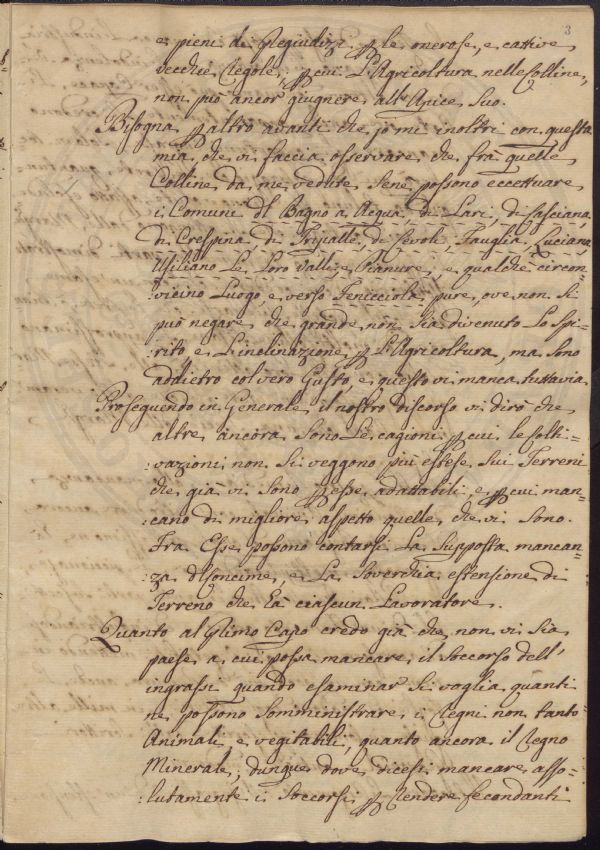 3
e pieni di Pregiudizi p le onerose, e cattive
vecchie Regole, p cui L'Agricoltura nelle Colline,
non può ancor giugnere all'Apice Suo.
Bisogna p altro avanti che io mi inoltri con questa
mia, che vi faccia osservare, che frà quelle
Colline da me vedute Sene possono eccettuare
i Comuni dl Bagno a Acqua, di Lari, di Casciana,
di Crespina, di Tripalle, di Cevoli, Fauglia, Luciana,
Usiliano Le Loro Valli, e Pianure, e qualche circon-
:vicino Luogo e verso Fenicciola pure, ove non Si
può negare che grande non Sia divenuto Lo Spi-
:rito e L'inclinazione p L'Agricoltura, ma Sono
addietro col vero Gusto, e questo vi manca tuttavia.
Proseguendo in Generale il nostro discorso vi dirò che
altre ancora Sono Le cagioni p cui le colti-
:vazioni non Si veggono più estese Sui Terreni
che già vi Sono p esse adattabili, e p cui man-
cano di migliore aspetto quelle, che vi Sono.
Fra Esse possono contarsi La Supposta mancan-
:za di Concime, e La Soverchia estensione di
Terreno che Ea ciascun Lavoratore.
Quanto al Primo Capo credo già che non vi Sia
paese a cui possa mancare il Soccorso dell'
ingrassi quando esaminar Si voglia quanti
ne possono Somministrare i Regni non tanto
Animali e vegitabili, quanto ancora il Regno
Minerale; dunque dove dicesi mancare asso-
:lutamente i Soccorsi p Rendere fecondanti